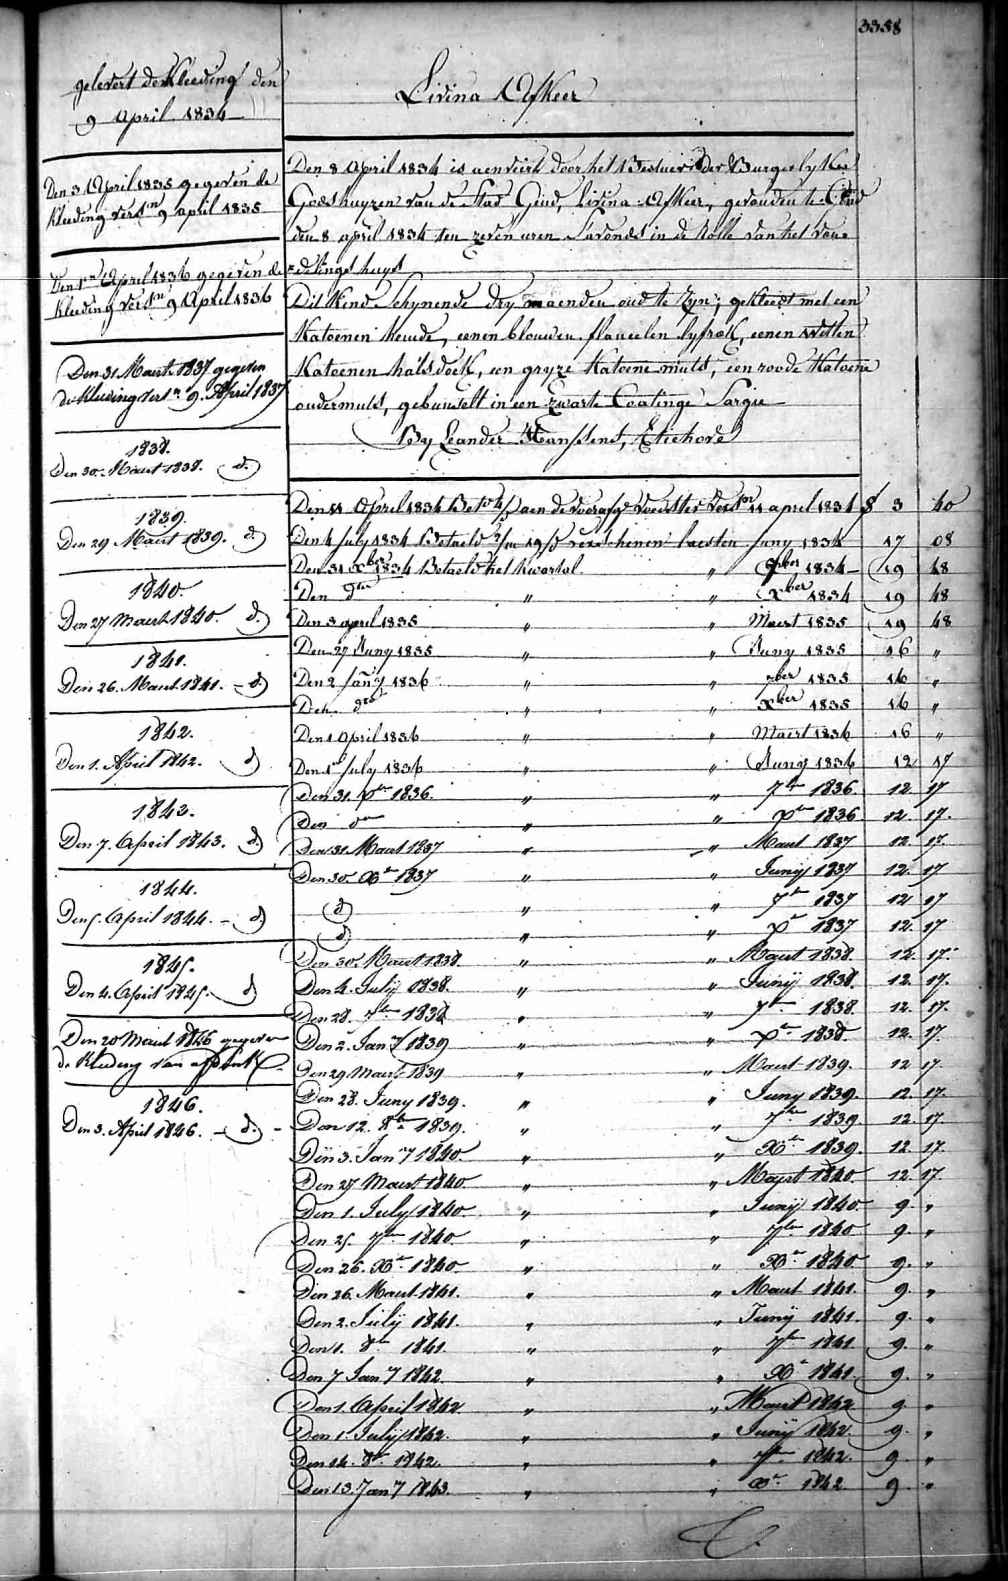 3358
gelevert de Kleeding den
9 April 1834
Den 3 April 1835 gegeven de
Kleeding verst.n 9 april 1835
Den 1.n April 1836 gegeven de
Kleeding verst.n 9 April 1836
Den 31 Maert 1837 gegeven
de Kleeding verst.n 9. April 1837
1838.
Den 30. Maert 1838. d.)
1839.
Den 29. Maert 1839. d.)
1840.
Den 27 Maert 1840. d.)
1841.
Den 26. Maert 1841. - d)
1842.
Den 1. April 1842. d)
1843.
Den 7. April 1843. d.)
1844.
Den 5. April 1844. - d)
1845.
Den 4. April 1845. d)
Den 20 Maert 1846 gegeven
de Kleeding van
1846.
Den 3. April 1846. - d.)
Livina Afkeer
Den 8 April 1834 is aenveirt door het Bestuer der Burgerlyke
Godshuyzen van de Stad Gend, Livina Afkeer, gevonden te Gend
den 8 april 1834 ten zeven uren s'avonds in de Rolle van het von=
=delingshuys
Dit Kind schynende dry maenden oud te zyn; gekleedt met een
Katoenen hemde, eenen blouwen flaneelen lyfrok, eenen witten
Katoenen halsdoek, een gryze Katoene muts, een roode Katoene
ondermuts, gebunselt in een zwarte Coatinge Sargie
By Leander Hanssens, Etichove
Den 11 April 1834 Bet. aen de voorafg. voedster verst.n 11 april 1834 f 3 40
Den 4 July 1834 betaeld verschenen laesten Juny 1834 17 08
Den 31 Xber 1834 Betaeld het kwartal " 7ber 1834 19 48
Den dto " " Xber 1834 19 48
Den 3 april 1835 " " Maert 1835 19 48
Den 27 Juny 1835 " " Juny 1835 16 "
Den 2 Jan.y 1836 " " 7ber 1835 16 "
Den dto " " Xber 1835 16 "
Den 1 April 1836 " " Maert 1836 16 "
Den 1.n July 1836 " " Juny 1836 12 17
Den 31. Xbr 1836. " " 7br 1836. 12. 17
Den do " " Xbr 1836 12. 17.
Den 31. Maert 1837 " " Maert 1837 12. 17.
Den 30. Xbr 1837 " " Junij 1837 12. 17
d) " " 7br 1837 12 17
d) " " Xr 1837 12. 17.
Den 30. Maert 1838. " " Maert 1838. 12. 17.
Den 4. Julij 1838. " " Junij 1838. 12. 17.
Den 28. 7br 1838 " " 7br 1838. 12. 17.
Den 2. Jan.y 1839 " " Xbr 1838. 12. 17.
Den 29 Maert 1839 " " Maert 1839. 12 17.
Den 28. Juny 1839. " " Juny 1839. 12. 17.
Den 12. 8br 1839. " " 7br 1839. 12. 17.
Den 3. Jan.y 1840. " " Xbr 1839. 12. 17.
Den 27 Maert 1840. " " Maert 1840. 12. 17.
Den 1. July 1840. " " Junij 1840. 9. "
Den 25. 7br 1840. " " 7br 1840 9. "
Den 26. Xbr 1840 " " Xbr 1840. 9. "
Den 26. Maert 1841. " " Maert 1841. 9. "
Den 2. Julij 1841. " " Junij 1841. 9. "
Den 1. 8br 1841. " " 7br 1841. 9. "
Den 7 Jan.y 1842. " " Xr 1841. 9. "
Den 1. April 1842 " " Maert 1842 9 "
Den 1 Julij 1842. " " Junij 1842. 9. "
Den 14. 8br 1842. " " 7br 1842. 9. "
Den 13. Jan.y 1843. " " Xr. 1842. 9. "